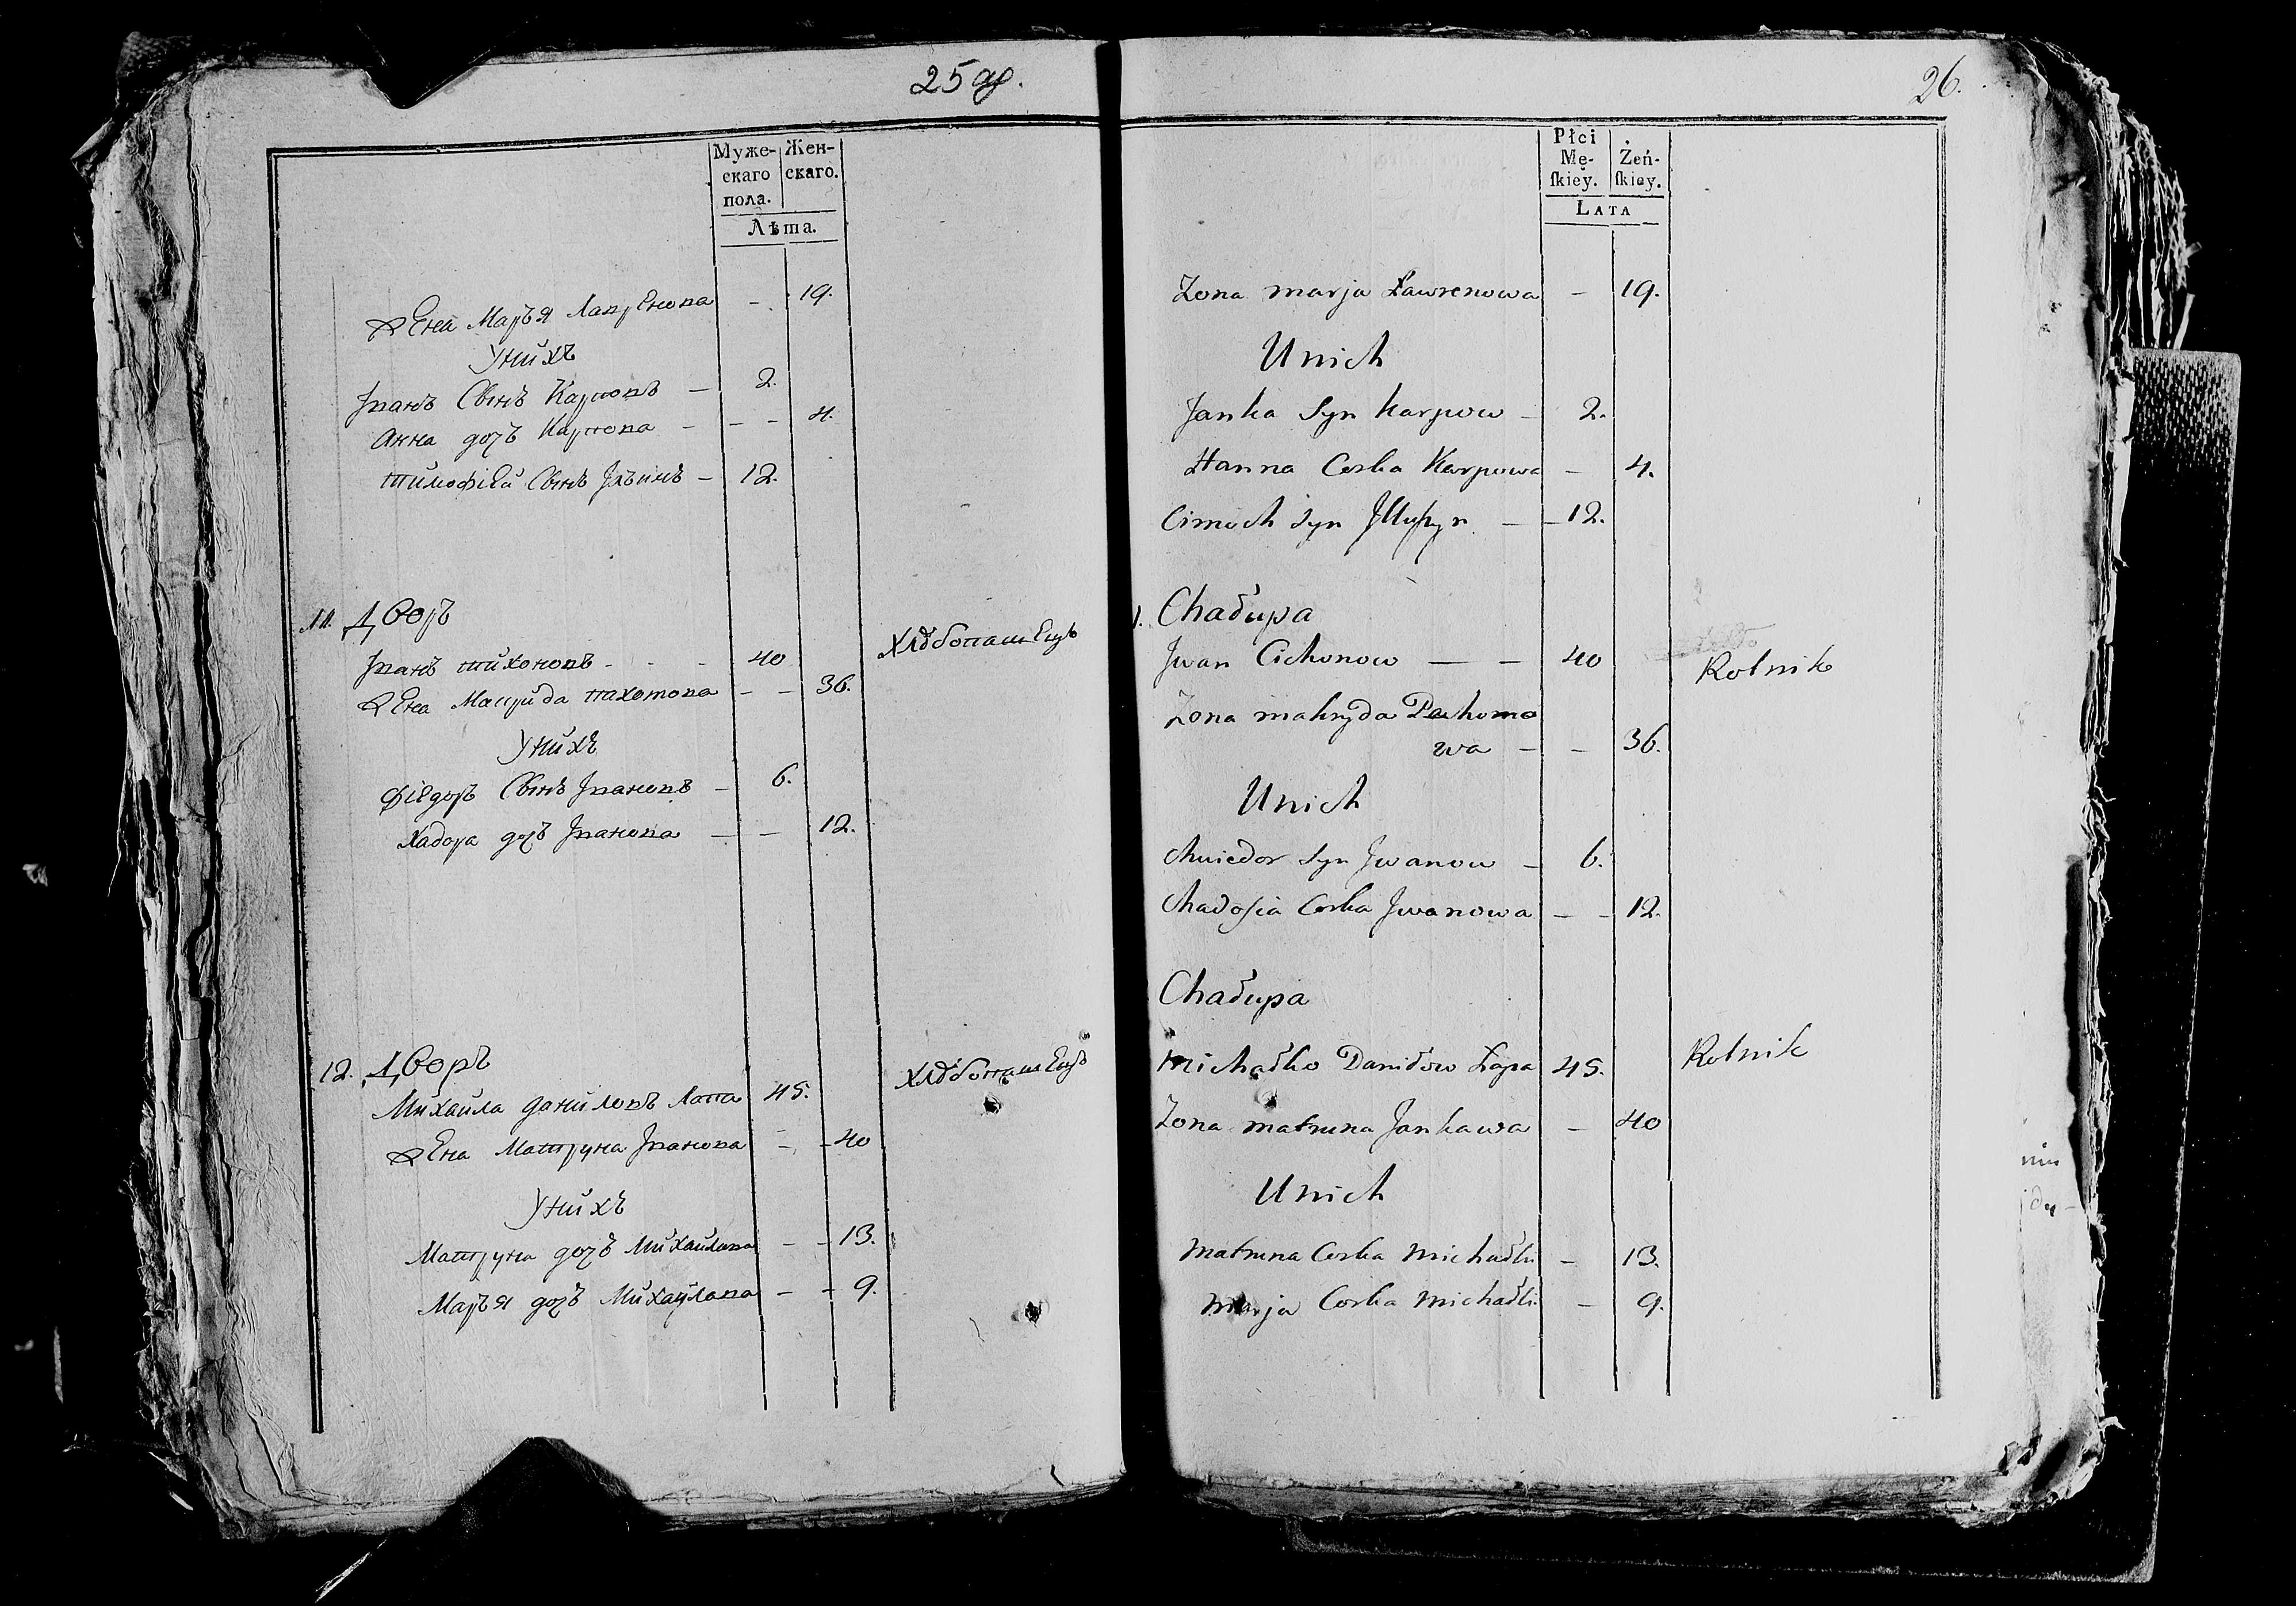 25 об.
Муже-
скаго
пола.
Жен-
скаго.
Лѣта.
Жена Марья Лавренова - 19.
У нихъ
Іванъ Сынъ Карповъ - 2.
Анна дочъ Карпова - - - 4.
Тимофіей Сынъ Ільинъ - 12.
11. Дворъ
Іванъ Тихоновъ - - - 40 Хлѣбопашецъ
Жена Макрида Пахомова - - 36.
У нихъ
Фіедоръ Сынъ Івановъ - 6.
дочъ Іванова - - 12.
12. Дворъ
Михайла Даниловъ Лапа 45. Хлѣбопашецъ
Жена Матруна Іванова - - 40
У нихъ
Матруна дочъ Михайлова - - 13.
Марья дочъ Михайлова - - 9.
26.
Płci
Mę-
ſkiey.
Żeń-
ſkiey.
LATA
Zona marja Ławrenowa - 19.
Unich
Janka Syn Karpow - 2.
Hanna Corka Karpowa - 4.
Cimoch Syn - - 12.
Chałupa
Jwan Cichonow - - 40 Rolnik
Zona makryda Pachomo
wa - - 36.
Unich
Chwiedor Syn Jwanow - 6.
Chadosia Corka Jwanowa - - 12.
Chałupa
Michałko Daniłow Łapa 45. Rolnik
Zona matruna Jankawa - 40
Unich
Matruna Corka Michałki - 13.
Marja Corka Michałki - 9.